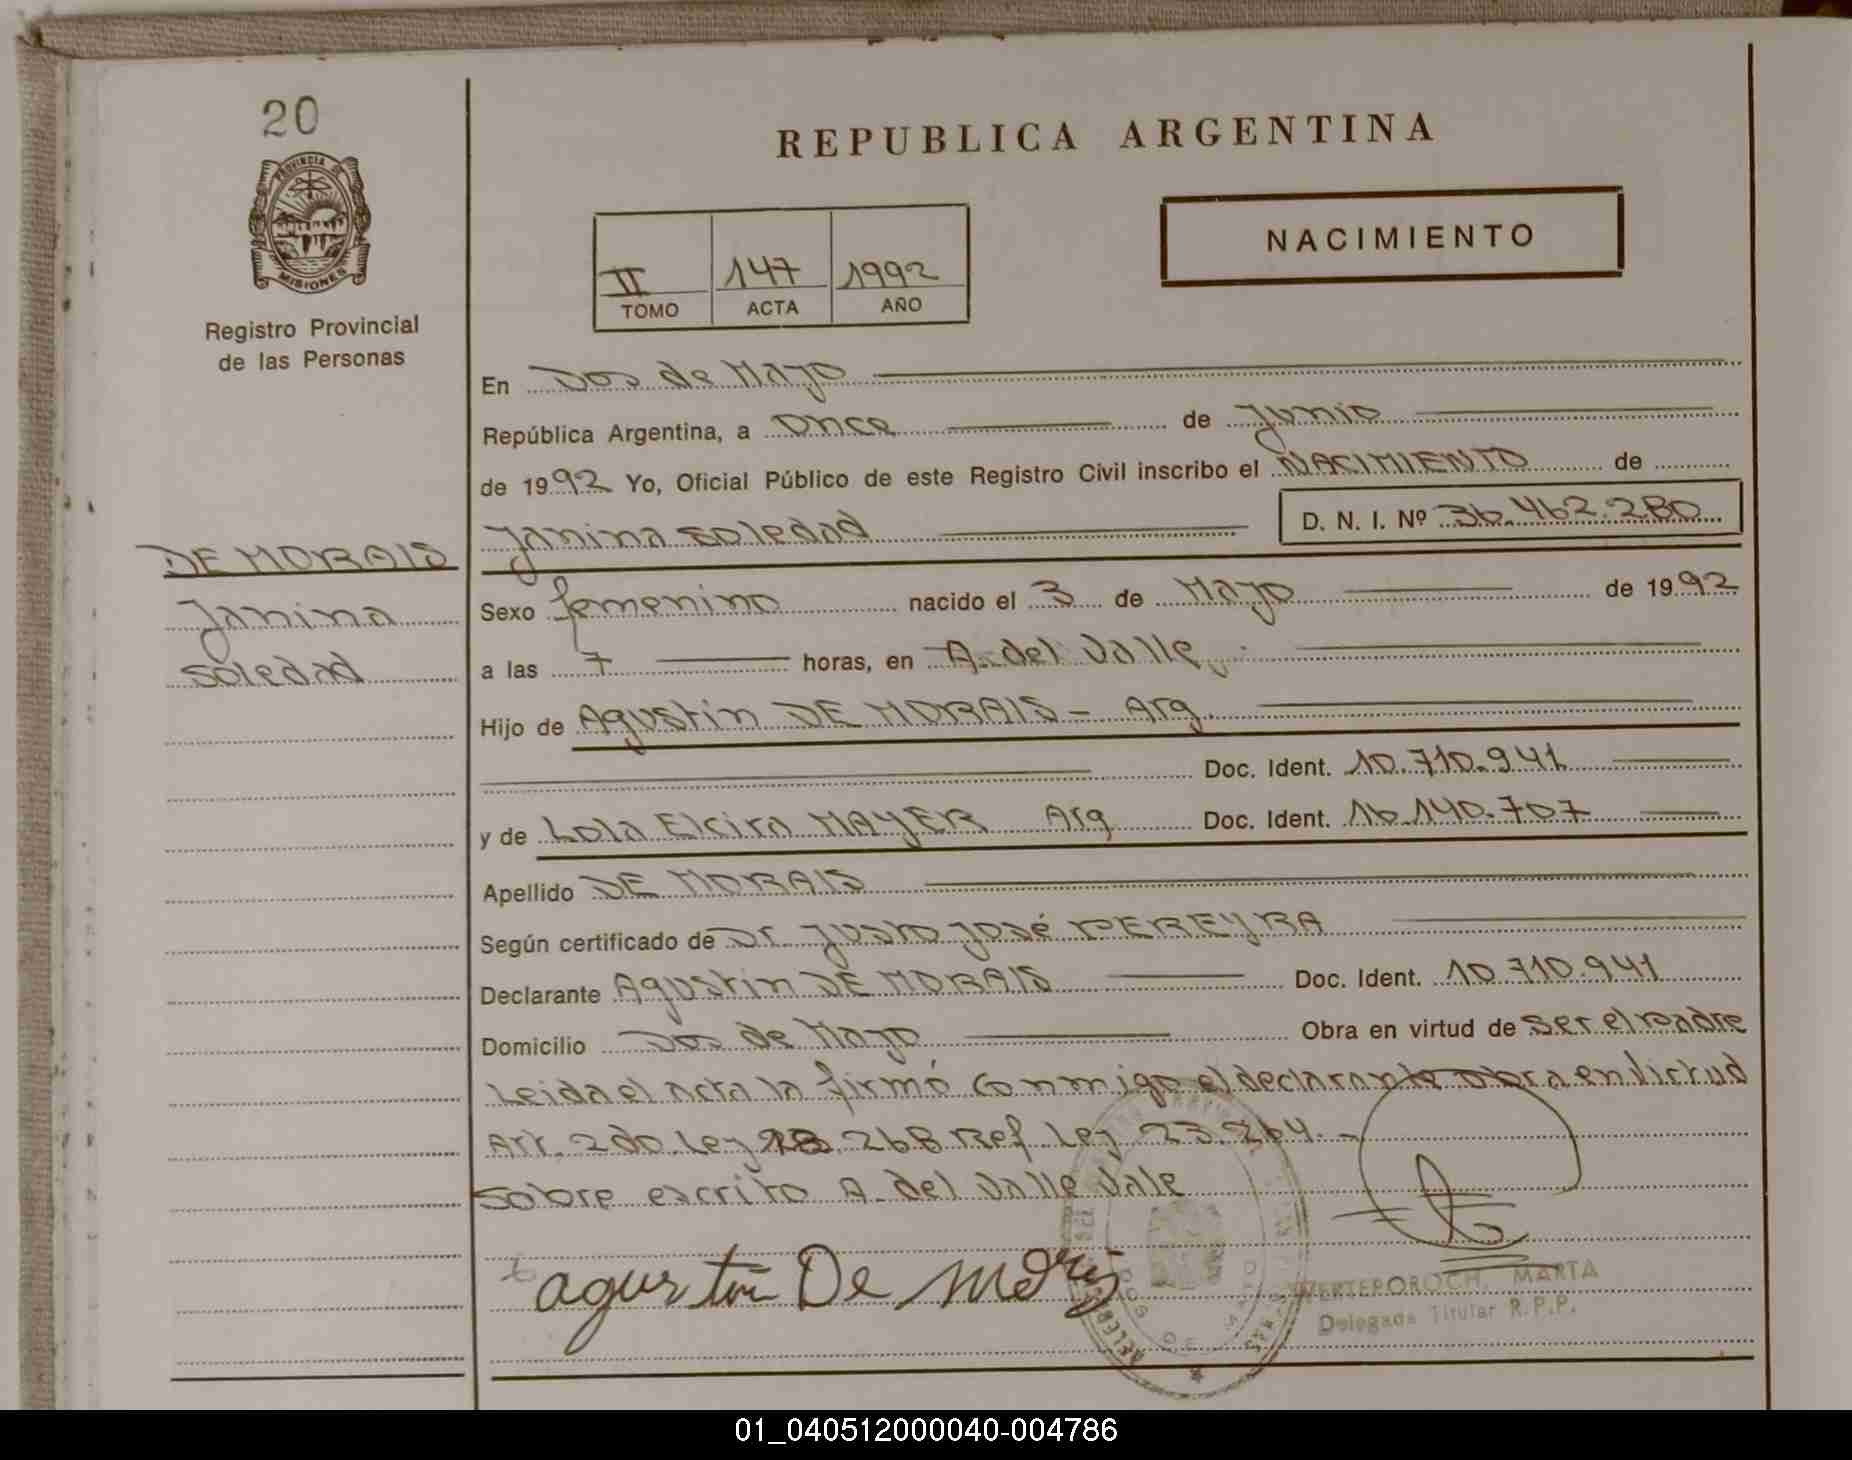 20
PROVINCIA DE
MISIONES
Registro Provincial
de las Personas
REPUBLICA ARGENTINA
NACIMIENTO
II 147 1992
TOMO ACTA AÑO
En Dos de Mayo
República Argentina, a Once de Junio
de 1992 Yo, Oficial Público de este Registro Civil inscribo el NACIMIENTO de
Janina Soledad D. N. I. Nº 36.462.280
DE MORAIS
Janina
Soledad
Sexo femenino nacido el 3 de Mayo de 1992
a las 7 horas, en A. del Valle
Hijo de Agustin DE MORAIS - Arg.
Doc. Ident. 10.710.941
y de Lola Elcira MAYER Arg Doc. Ident. 16.140.707
Apellido DE MORAIS
Según certificado de Dr. Justo José PEREYRA
Declarante Agustin DE MORAIS Doc. Ident. 10.710.941
Domicilio Dos de Mayo Obra en virtud de Ser el padre
Leida el acta la firmó Conmigo el declarante obra en Virtud
Art. 2do. Ley 18.268 Ref Ley 23.264.-
Sobre escrito A. del Valle Vale
agustin De Moris
WERTEPOROCH, MARTA
Delegada Titular R.P.P.
DOS DE MAYO
01_040512000040-004786